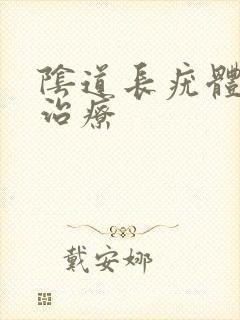 陰道長疣體
治療
戴安娜